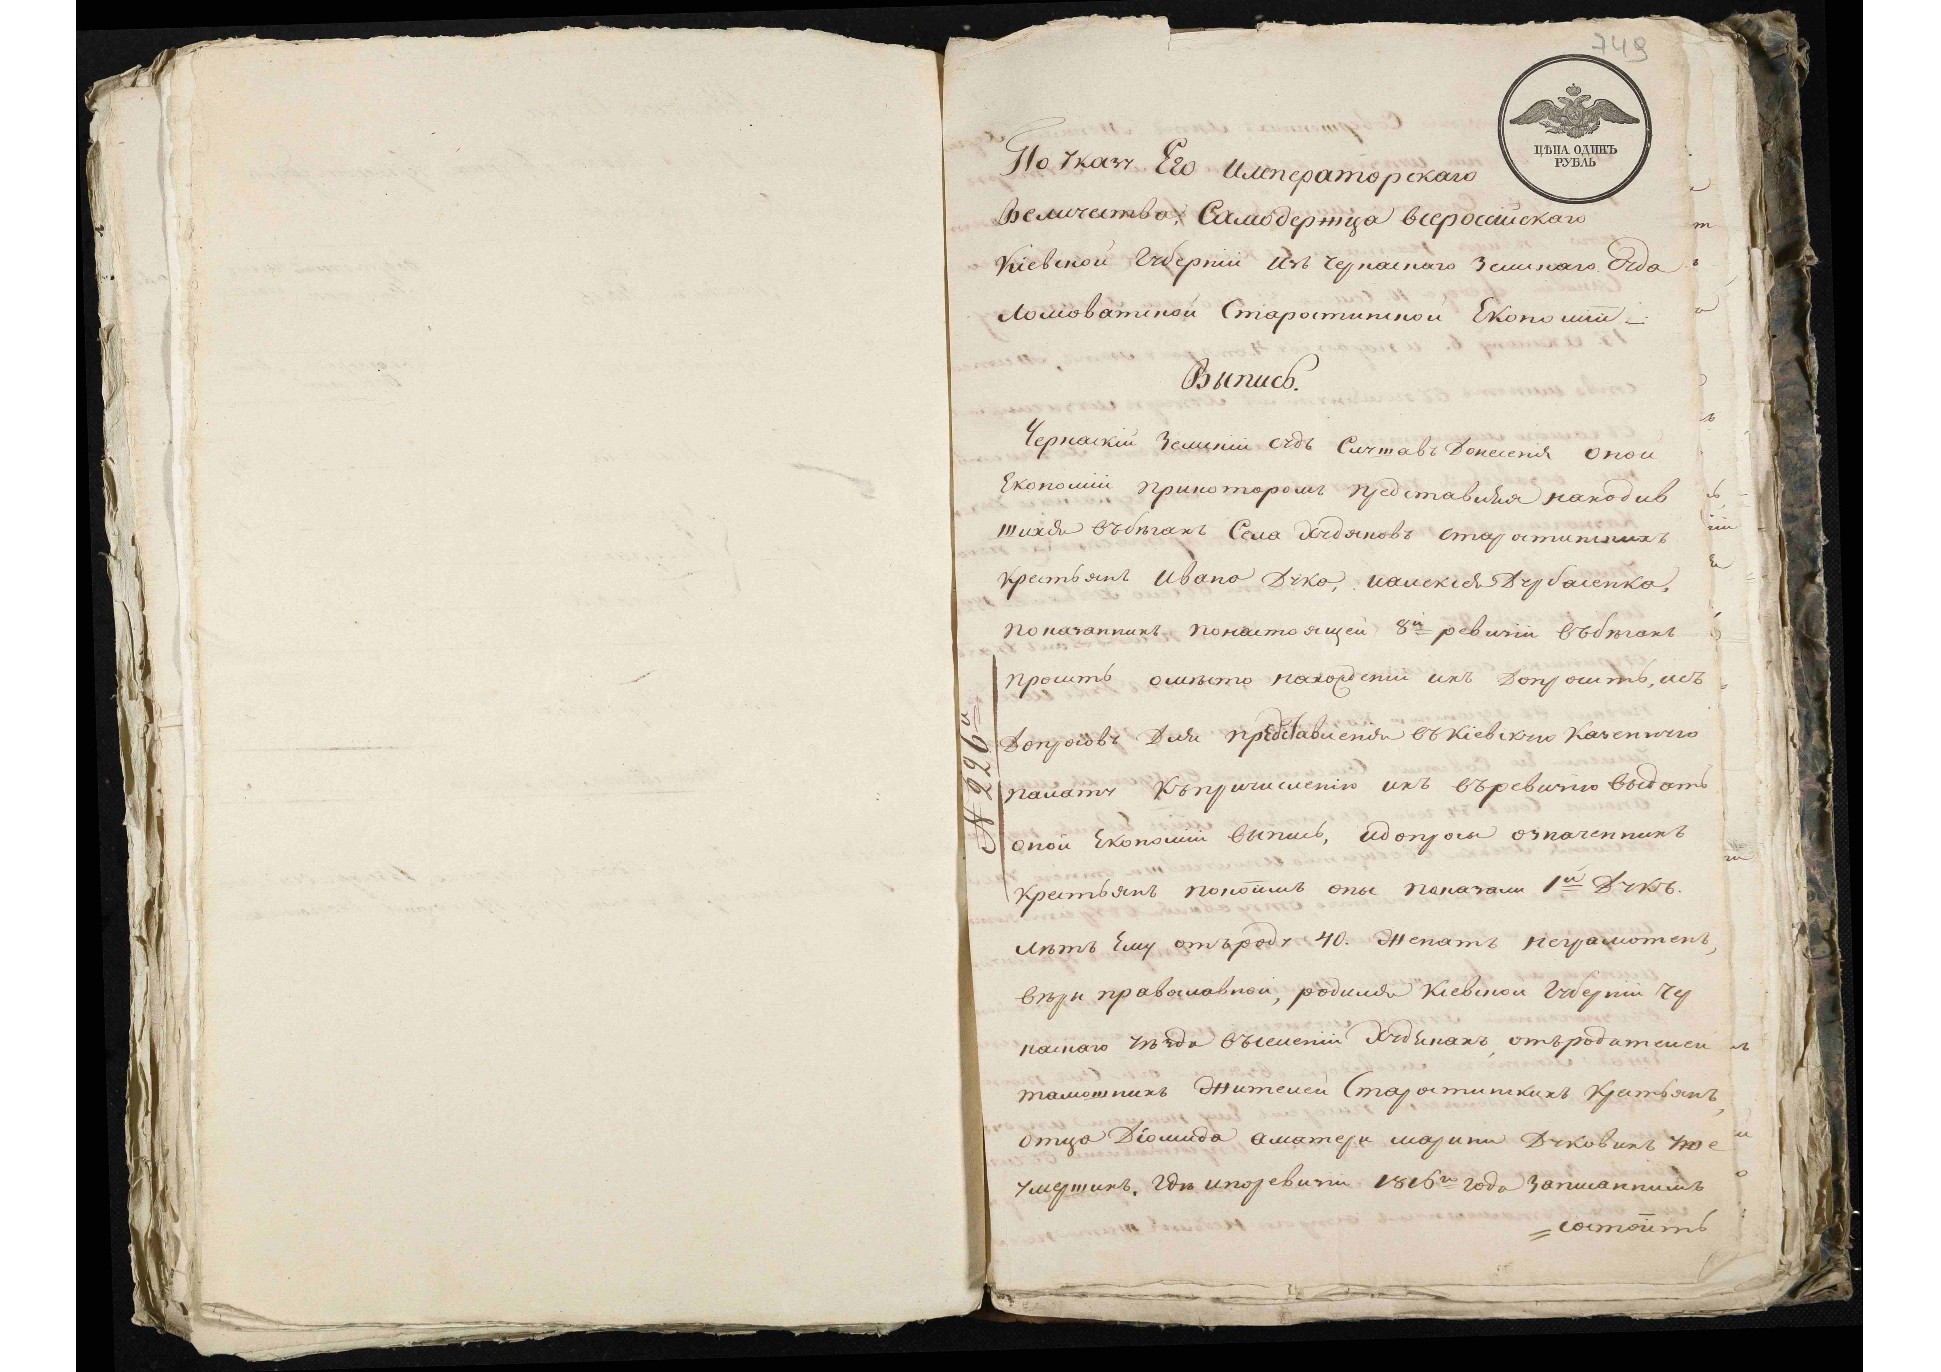 749
ЦѢНА ОДИНЪ
РУБЛЬ
По указу Его Императорскаго
Величества, Самодержца всеросіискаго
Кіевской Губерніи изъ Черкаскаго Земскаго Суда
Ломоватской Старостинской Економіи
Выпись.
Черкаскій Земскій судъ слушавъ Донесенія оной
Економіи прикоторомъ представился находив
шихся въбѣгахъ Села Худяковъ старостинскихъ
крестьянъ Ивана Дука, иалексѣя Дурбасенка,
показанныхъ понастоящей 8й ревизіи въбѣгахъ
просить омѣсто нахожденіи ихъ Допросить, исъ
Допросовъ Для представленія въ Кіевскую Казенную
палату къпричисленію ихъ въревизію выдать
оной Економіи выпись, идопросы означенныхъ
крестьянъ покоимъ оны показали 1й Дукъ.
лѣтъ Ему отъроду 40. Женатъ неграмотенъ,
вѣры православной, родился Кіевской Губерніи Чер
каскаго уѣзда въселеніи Худякахъ, отъродителей
тамошнихъ Жителей Старостинскихъ Крестьянъ,
отца Діомида аматери марины Дуковыхъ уже
умершихъ, гдѣ ипоревизіи 1816го года записаннымъ
состоитъ
№ 226й